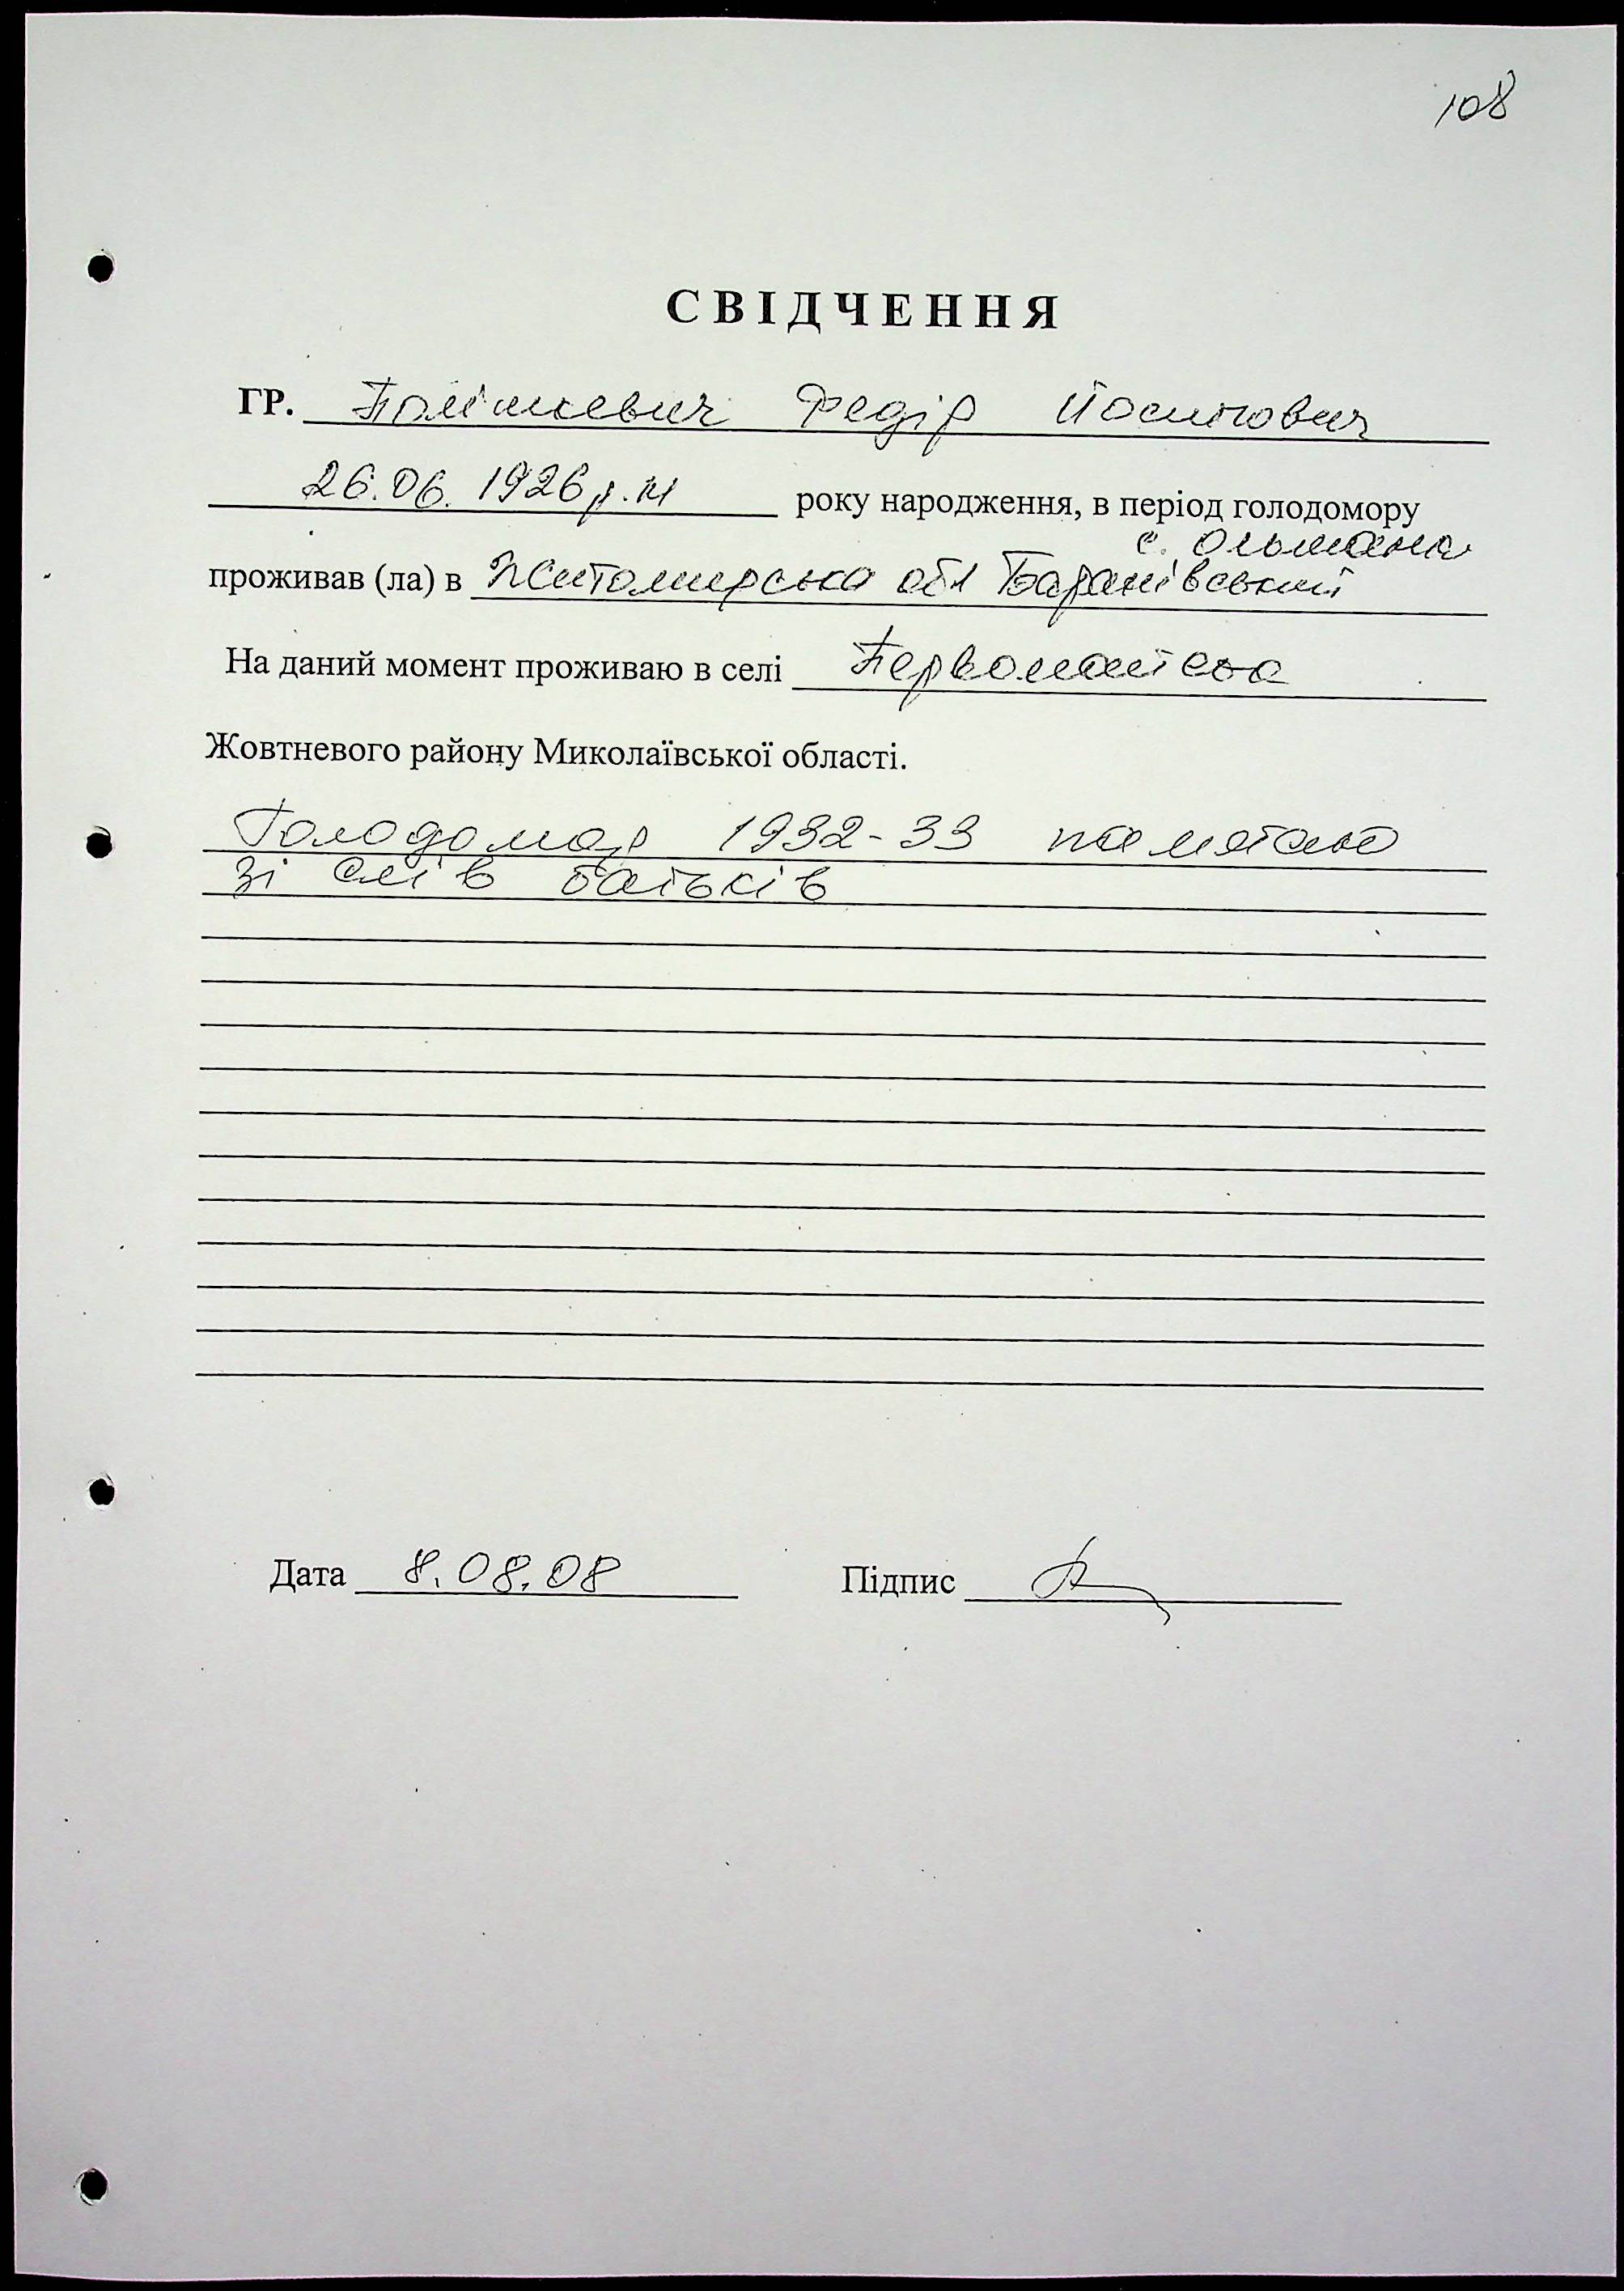 108
СВІДЧЕННЯ
ГР. Полішкевич Федір Йосипович
26.06.1926 р.н року народження, в період голодомору
с. Ольшана
проживав (ла) в Житомирська обл Баранівський
На даний момент проживаю в селі Первомайська
Жовтневого району Миколаївської області.
Голодомор 1932-33 памятаю
зі слів батьків
Дата 8.08.08 Підпис